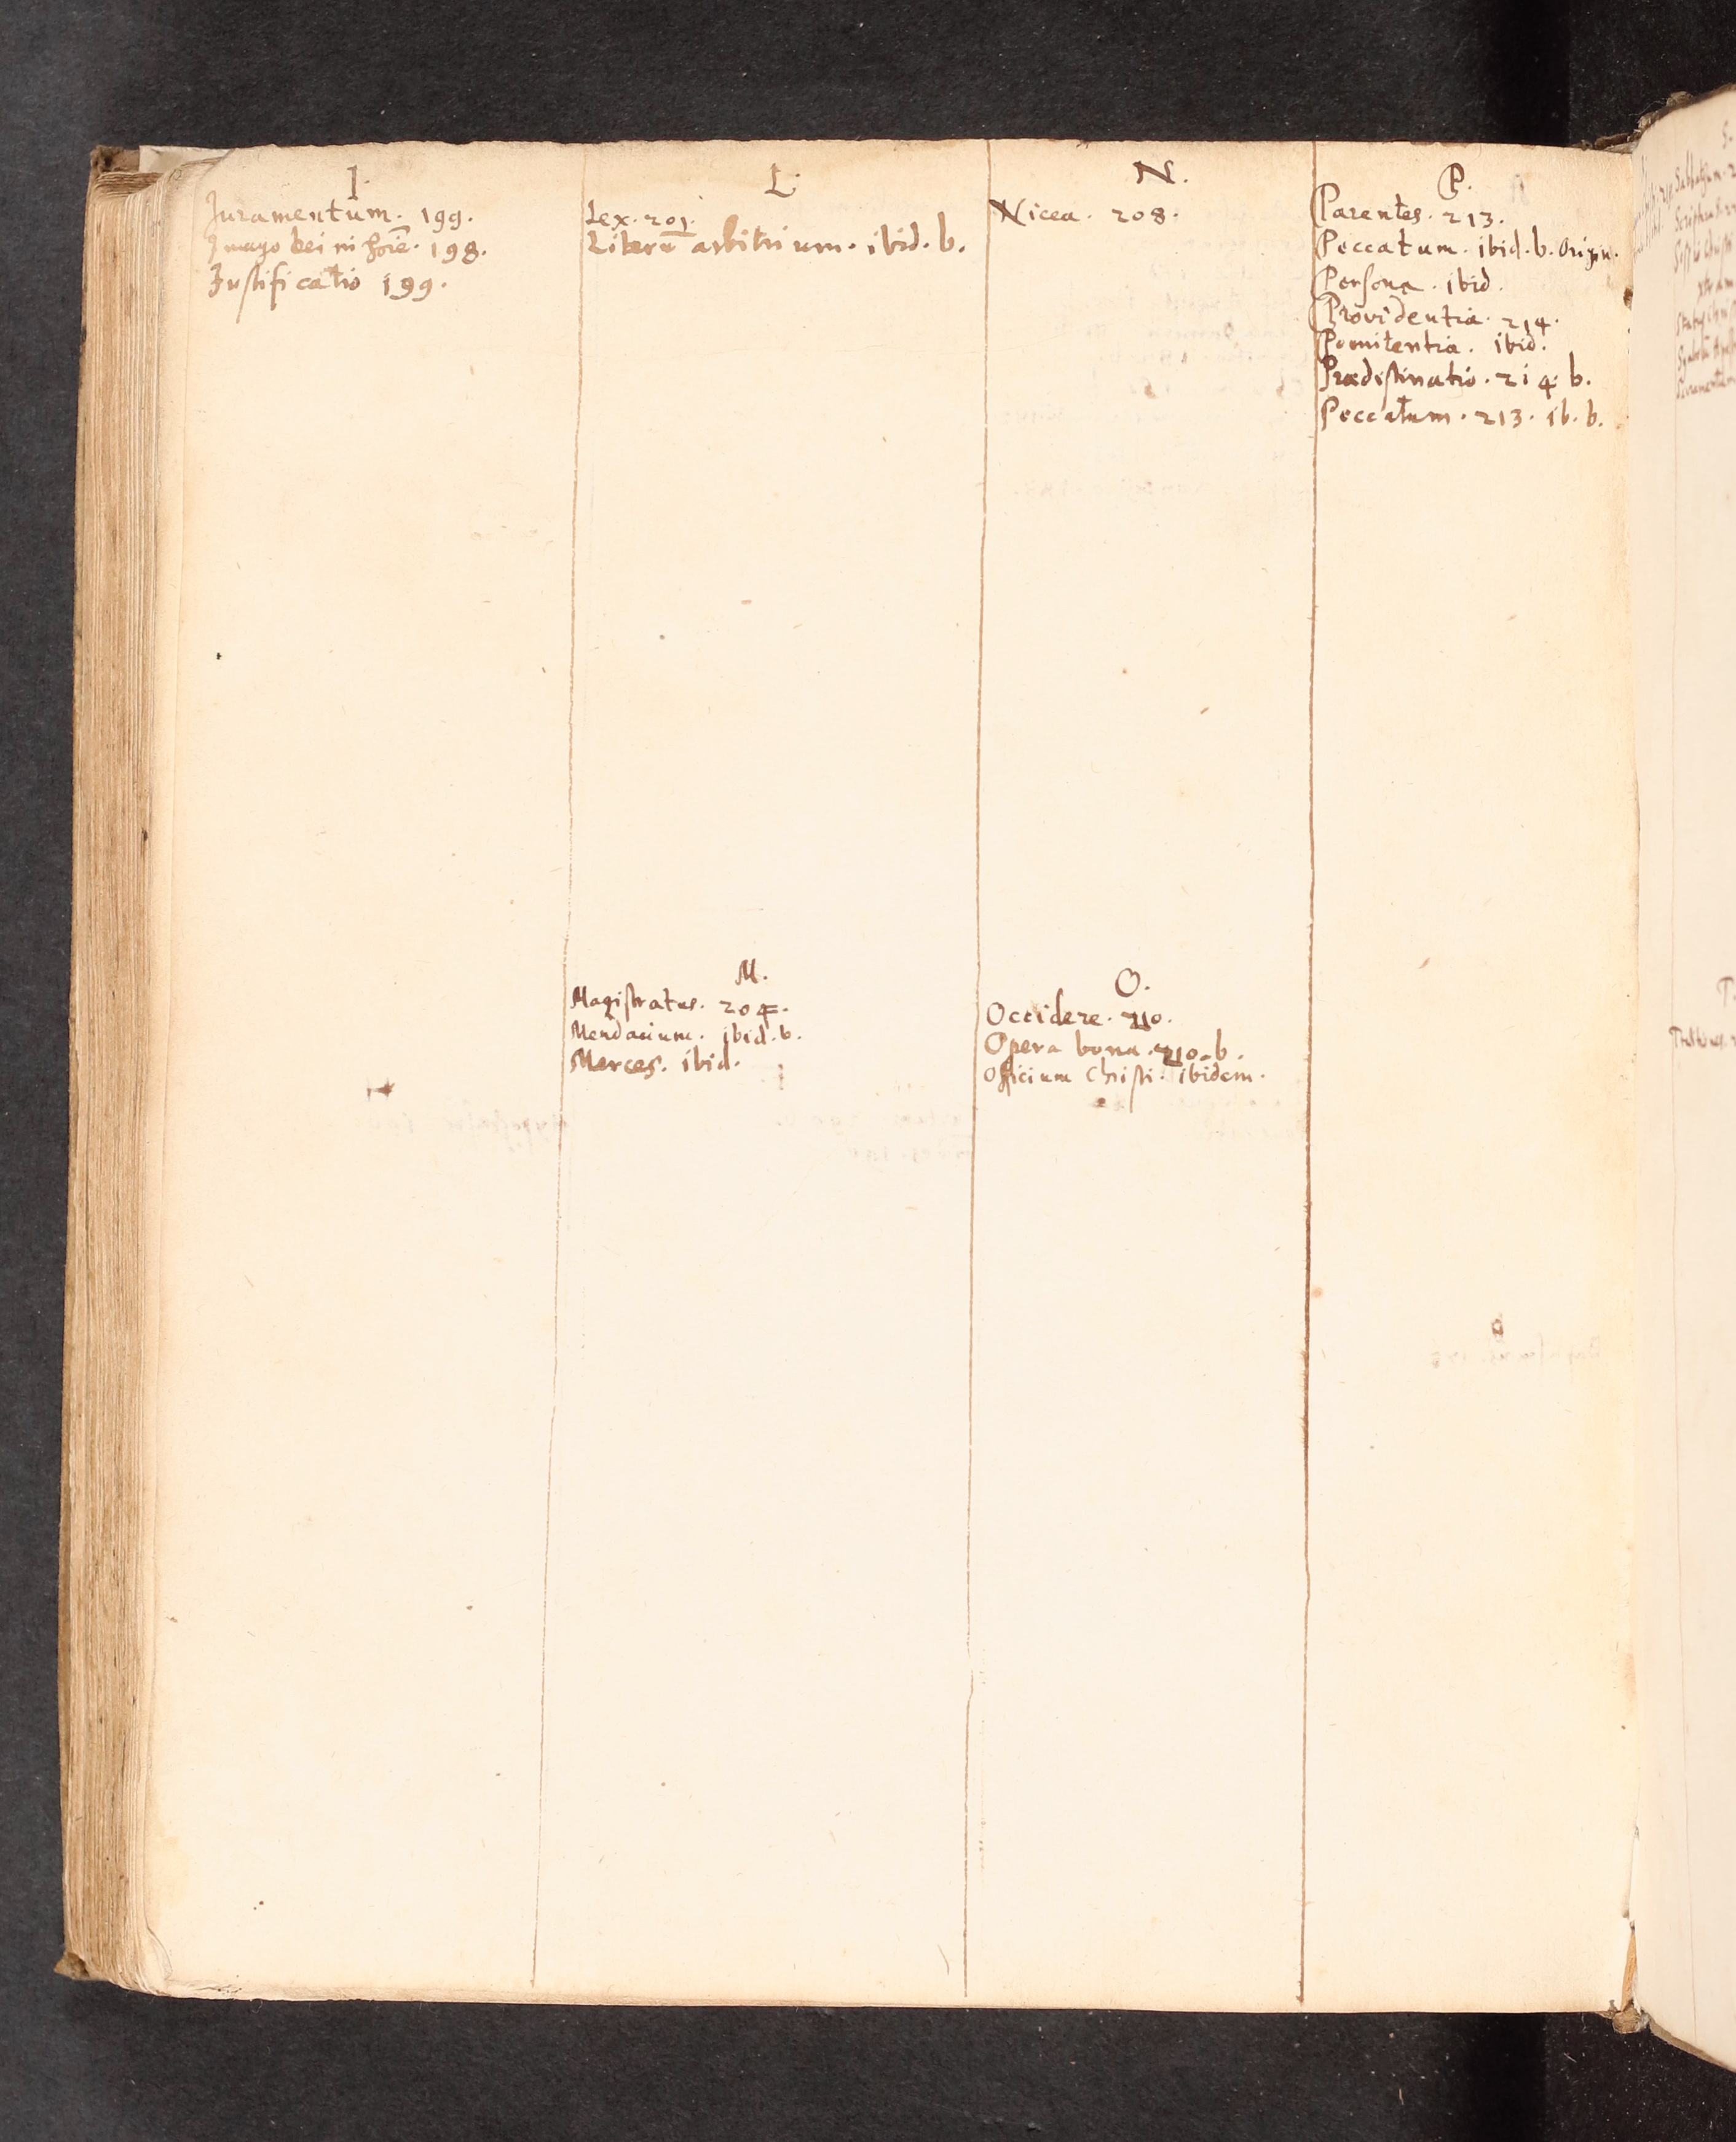 I.
Juramentum. 199.
Imago Dei in hoīe. 198.
Justificatio 199.
L.
Lex. 201.
Liberū arbitrium. ibid. b.
M.
Magistratus. 204.
Mendacium. ibid. b.
Merces. ibid.
N.
Nicea. 208.
O.
Occidere. 210.
Opera bona. 210. b.
Officium Christi. ibidem.
P.
Parentes. 213.
Peccatum. ibid. b. Origin.
Persona. ibid.
Providentia. 214.
Poenitentia. ibid.
Prædestinatio. 214 b.
Peccatum. 213. ib. b.